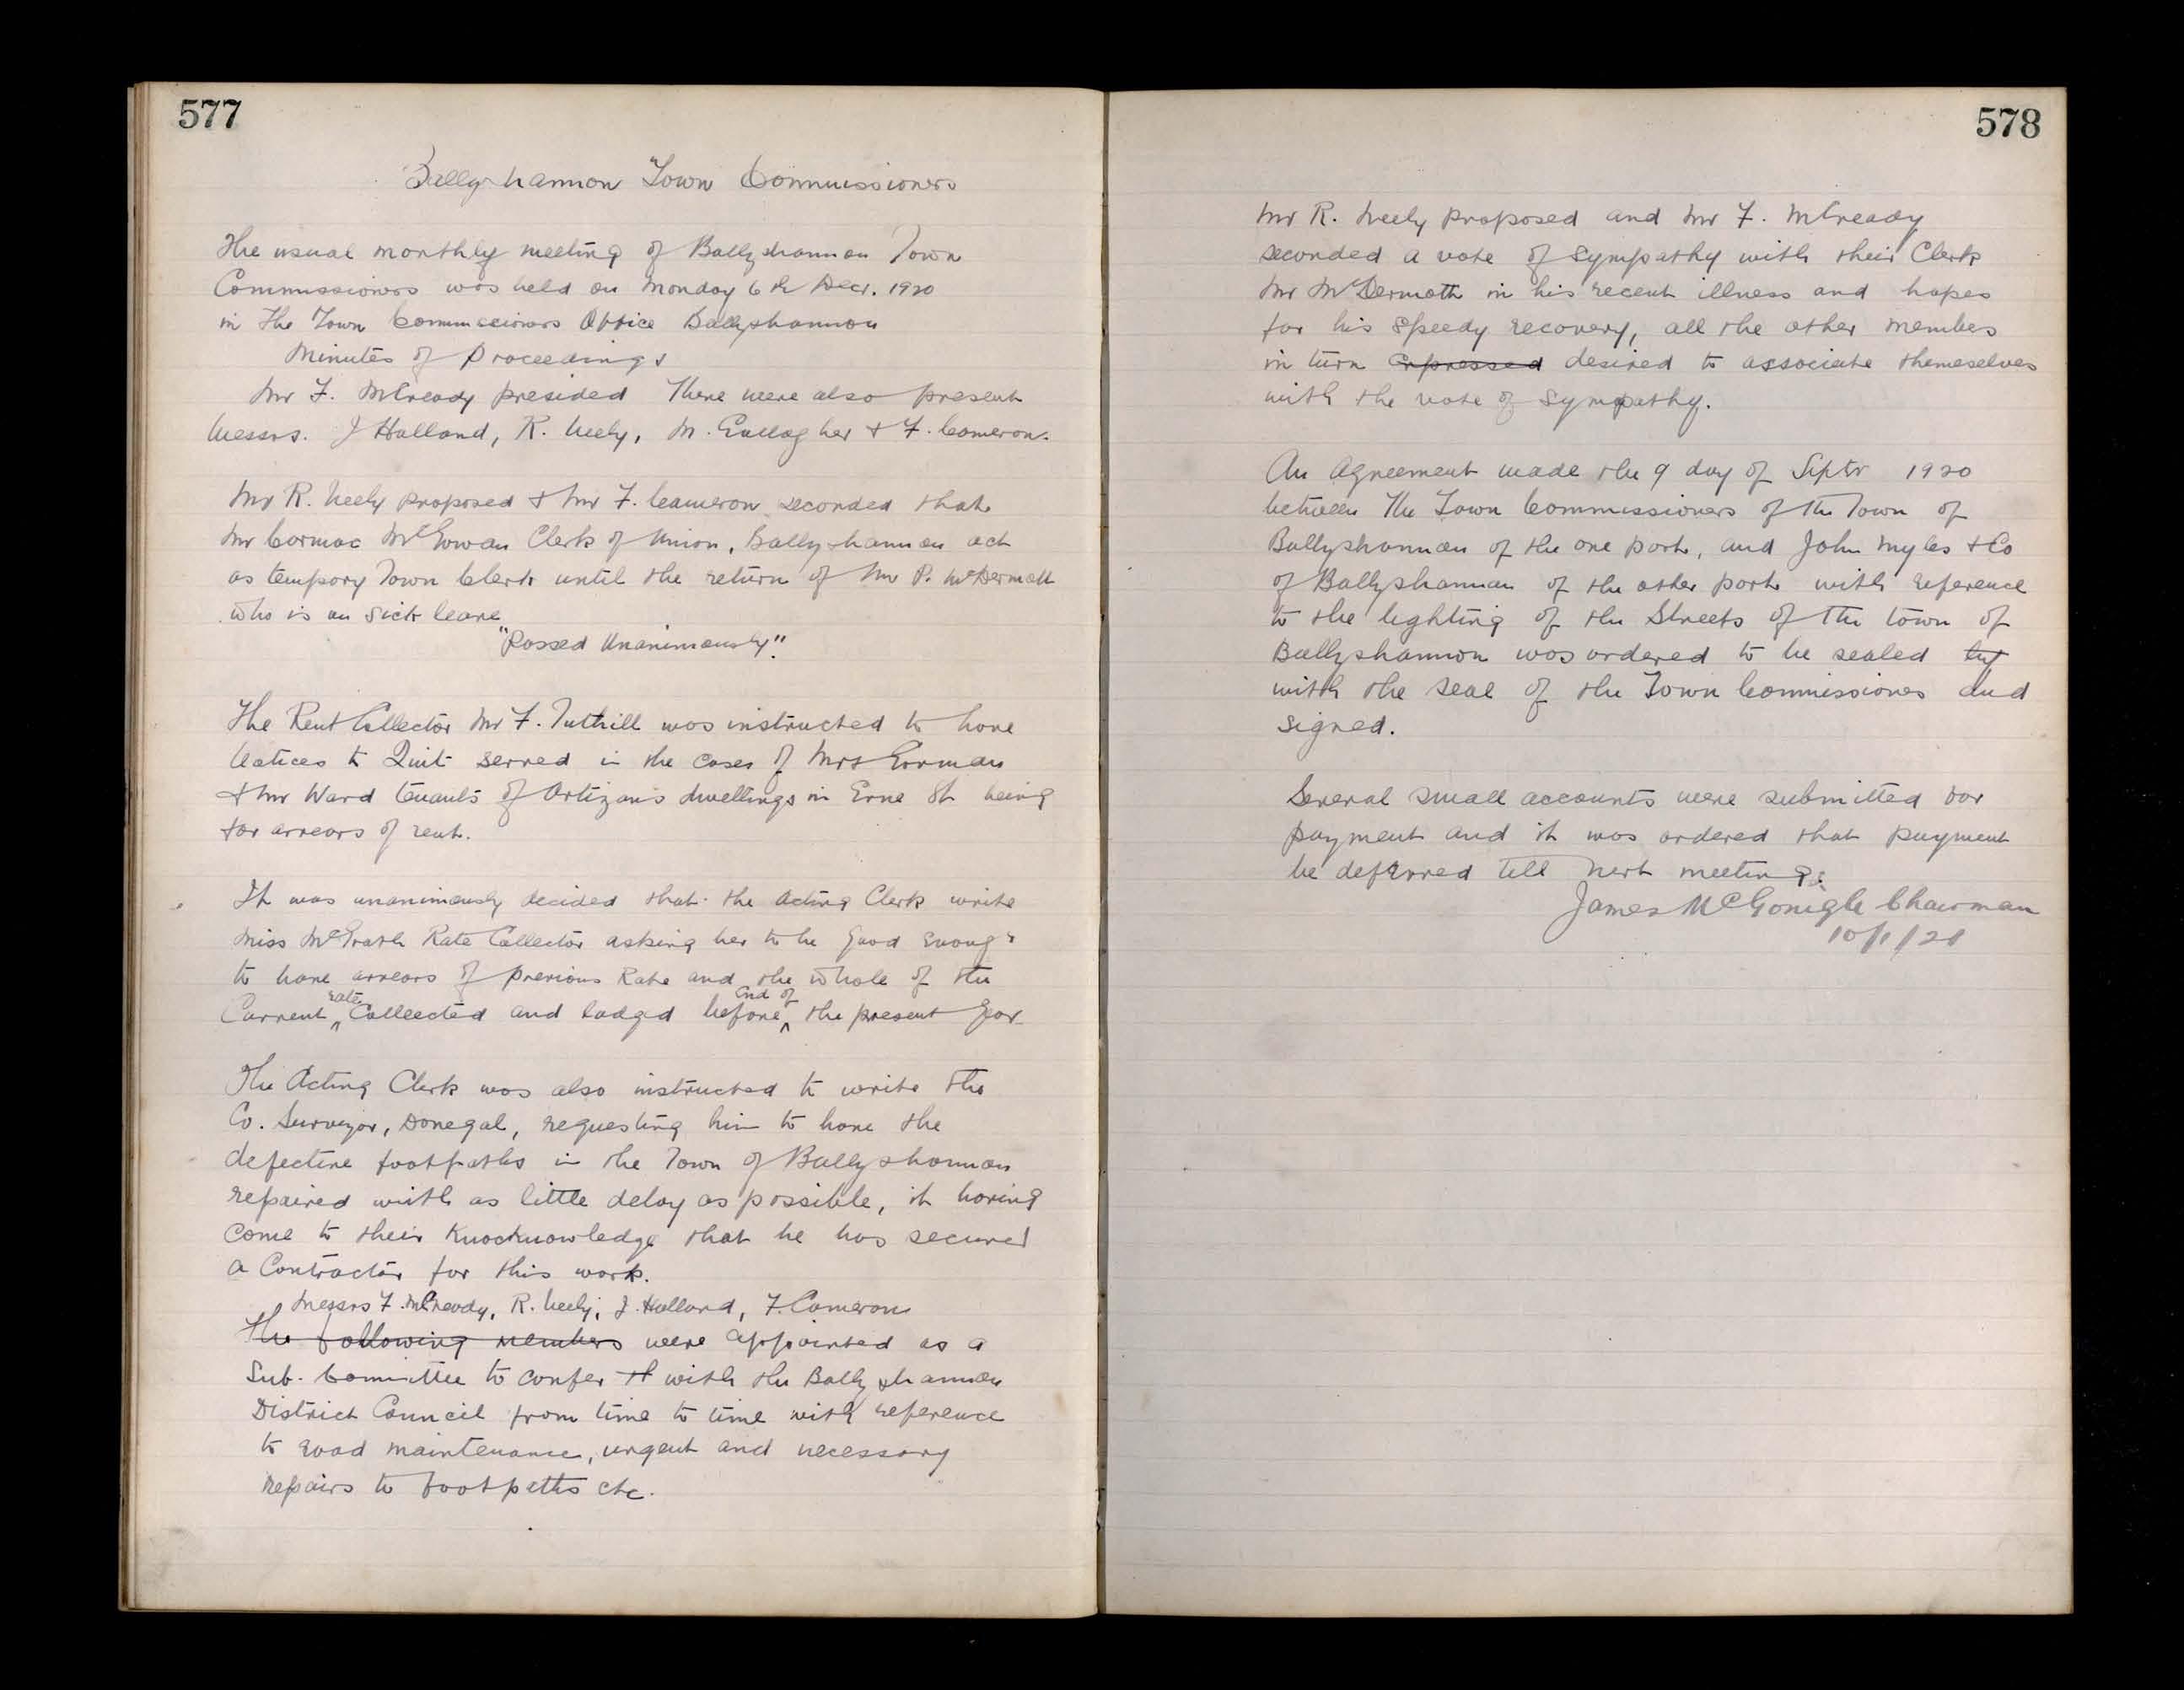 577
Ballyshannon Town Commissioners
The usual monthly meeting of Ballyshannon Town
Commissioners was held on Monday 6th Decr. 1920
in the Town Commissioners Office Ballyshannon
Minutes of Proceedings
Mr F. McCready presided There were also present
Messrs. J Holland, R. Neely, M. Gallagher & F. Cameron.
Mr R. Neely proposed & Mr F. Cameron seconded that
Mr Cormac McGowan Clerk of Union, Ballyshannon act
as tempory Town Clerk until the return of Mr P. McDermott
who is on sick leave
"Passed Unanimously".
The Rent Collector Mr F. Tuthill was instructed to have
Notices to Quit served in the cases of Mrs Gorman
& Mr Ward tenants of Artizan's dwellings in Erne St being
for arrears of rent.
It was unanimously decided that the Acting Clerk write
Miss McGrath Rate Collector asking her to be good enough
to have arrears of previous Rate and the whole of the
Current rate Collected and lodged before end of the present year
The Acting Clerk was also instructed to write the
Co. Surveyor, Donegal, requesting him to have the
defective footpaths in the Town of Ballyshannon
repaired with as little delay as possible, it having
come to their Knocknowledge that he has secured
a Contractor for this work.
Messrs F. McCready, R. Neely, J. Holland, F. Cameron
The following members were appointed as a
Sub-Committee to confer with the Ballyshannon
District Council from time to time with reference
to road maintenance, urgent and necessary
repairs to footpaths etc.
578
Mr R. Neely proposed and Mr F. McCready
seconded a vote of sympathy with their Clerk
Mr McDermott in his recent illness and hopes
for his speedy recovery, all the other membes
in turn expressed desired to associate themeselves
with the vote of sympathy.
An Agreement made the 9 day of Septr 1920
between The Town Commissioners of the Town of
Ballyshannon of the one part, and John Myles & Co
of Ballyshannon of the other part with reference
to the lighting of the Streets of the town of
Ballyshannon was ordered to be sealed by
with the seal of the Town Commissiones and
signed.
Several small accounts were submitted for
payment and it was ordered that payment
be deferred till next meeting.
James McGonigle Chairman
10/1/21